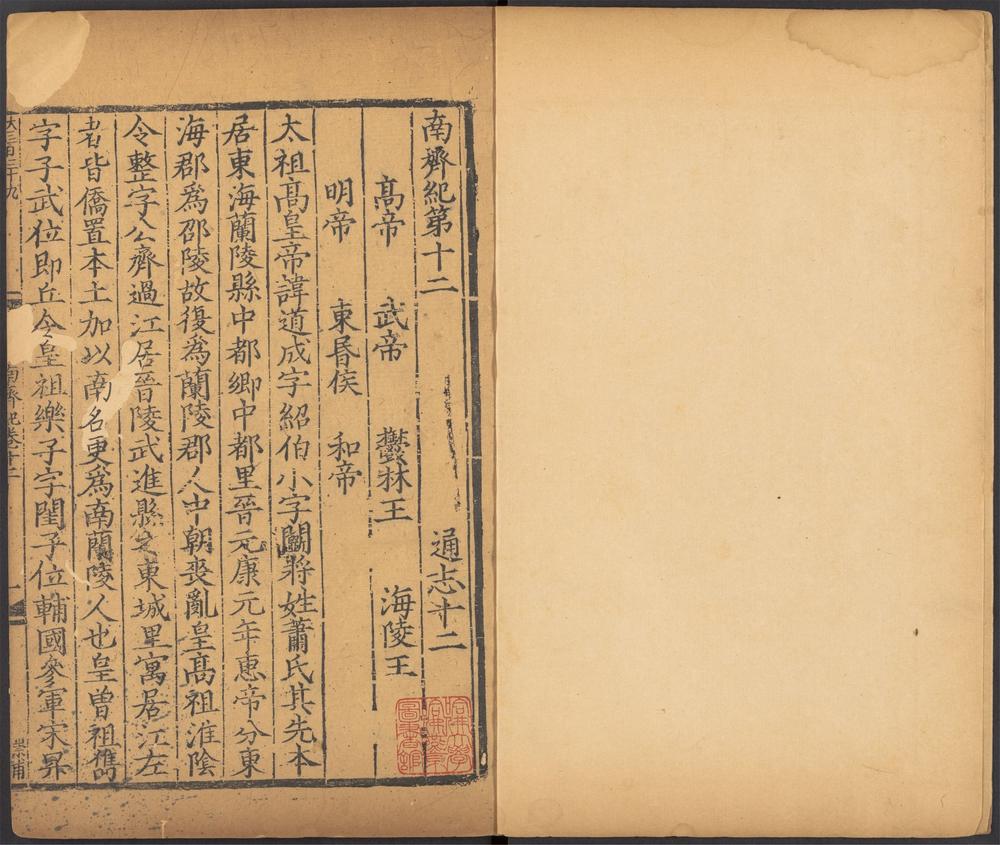 南齊紀第十二 通志十二
髙帝 武帝 欝林王 海陵王
明帝 東昏侯 和帝
太祖髙皇帝諱道成字紹伯小字鬬將姓蕭氏其先本
居東海蘭陵縣中都鄉中都里晉元康元年惠帝分東
海郡爲邵陵故復爲蘭陵郡人中朝喪亂皇髙祖淮陰
令整字公齊過江居晉陵武進縣之東城里寓居江左
者皆僑置本土加以南名更爲南蘭陵人也皇曾祖儁
字子武位即丘令皇祖樂子字閨子位輔國參軍宋昇
南齊紀卷十二